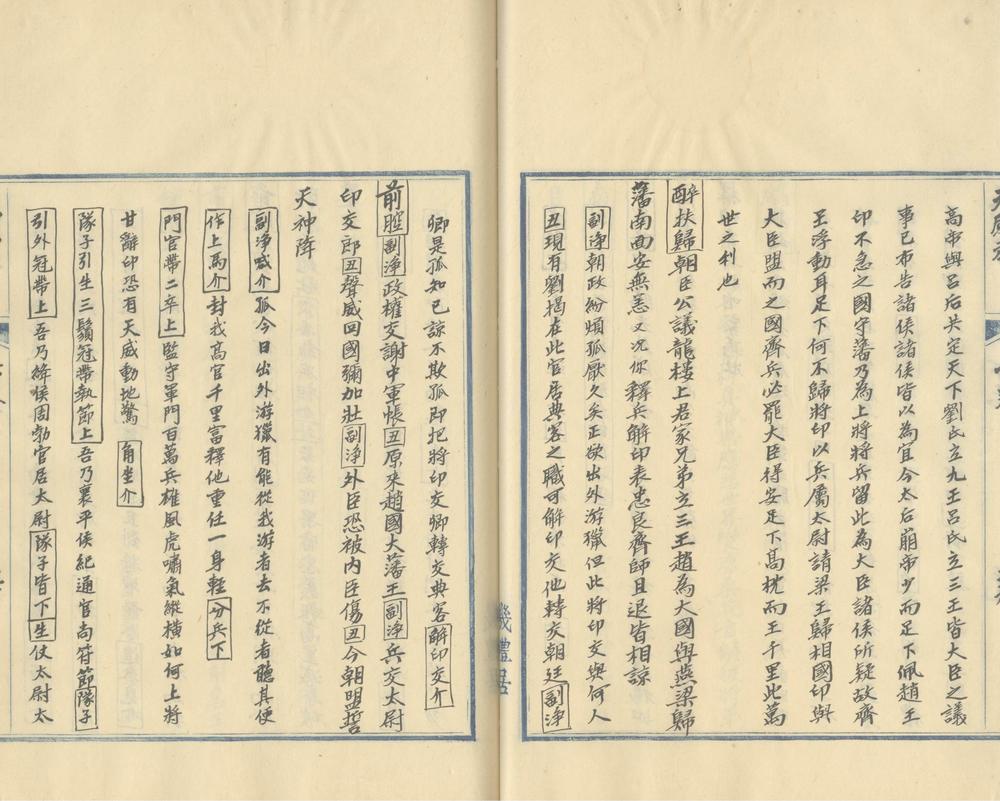 高帝與吕后共定天下劉氏立九王吕氏立三王皆大臣之議
事已布告諸侯諸侯皆以為宜今太后崩帝少而足下佩趙王
印不急之國守藩乃為上將將兵留此為大臣諸侯所疑故齊
王浮動耳足下何不歸將印以兵屬太尉請梁王歸相國印與
大臣盟而之國齊兵必罷大臣得安足下髙枕而王千里此萬
世之利也
醉扶歸朝臣公議龍樓上君家兄弟立三王趙為大國與燕梁歸
藩南面安無恙又况你釋兵解印表忠良齊師且退皆相諒
副浄朝政紛煩孤厭久矣正欲出外游獵但此將印交與何人
丑現有劉揭在此官居典客之職可解印交他轉交朝廷副浄
卿是孤知已諒不欺孤即把將印交卿轉交典客解印交介
前腔副浄政權交謝中軍帳丑原來趙國大藩王副浄兵交太尉
印交郎丑聲威回國彌加壯副浄外臣恐被内臣傷丑今朝盟誓
天神降
副浄喊介孤今日出外游獵有能從我游者去不從者聽其便
作上馬介封我高官千里富釋他重任一身輕分兵下
門官帶二卒上監守軍門百萬兵雄風虎嘯氣縱横如何上將
甘辭印恐有天威動地驚角坐介
隊子引生三鬚冠帶執節上吾乃襄平侯紀通官尚符節隊子
引外冠帶上吾乃絳候周勃官居太尉隊子皆下生仗太尉太
幾禮居